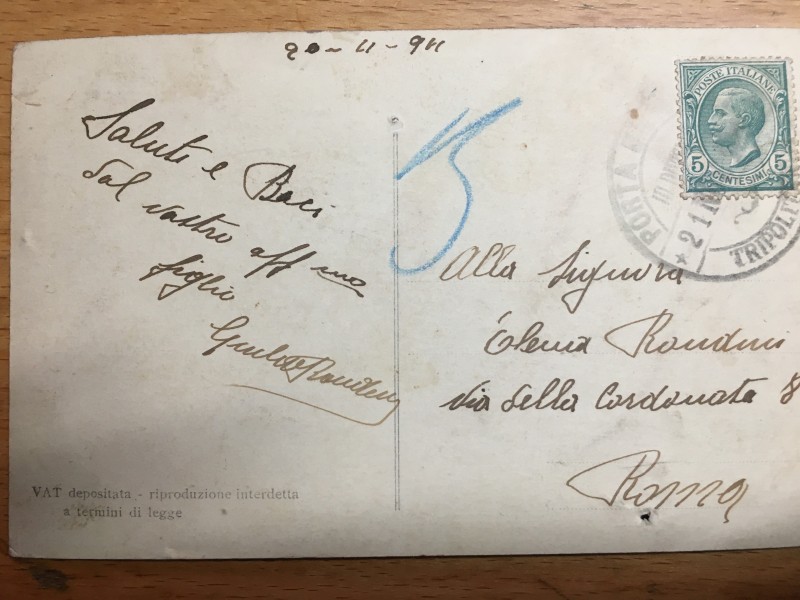 20-11-911
POSTE ITALIANE
5 5
CENTESIMI
21
TRIPOLI
Saluti e Baci
dal vostro aff mo
figlio
Giulio Rondini
Alla Signora
Elena Rondini
via della Cordonata 8
Roma
VAT depositata - riproduzione interdetta
a termini di legge